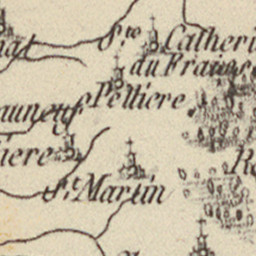 Ste Catheri
du Fraus
Pelliere
auneuf
iere
St. Martin